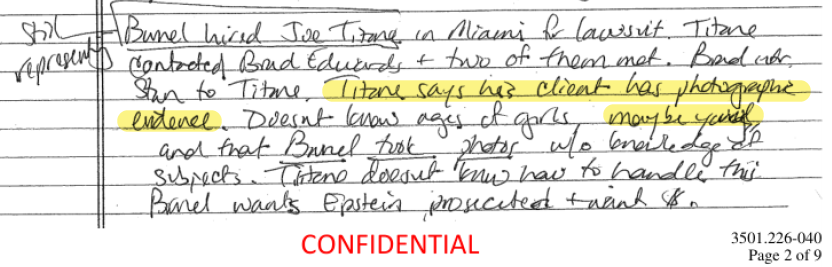 still represent
Brunel hired Joe Titone in Miami for lawsuit. Titone
contacted Brad Edwards + two of them met. Brad intr.
Stan to Titone. Titone says his client has photographic
evidence. Doesnt know ages of girls, maybe young,
and that Brunel took photos w/o knowledge of
subjects. Titone doesnt know how to handle this
Brunel wants Epstein prosecuted + want $.
CONFIDENTIAL
3501.226-040
Page 2 of 9